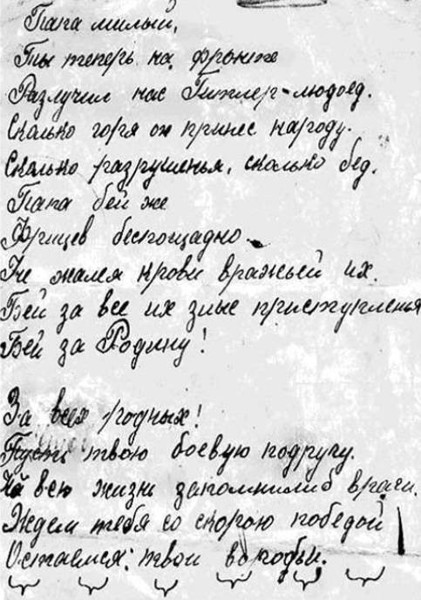 Папа милый,
Ты теперь на фронте
Разлучил нас Гитлер-людоед.
Сколько горя он принес народу.
Сколько разрушенья, сколько бед.
Папа бей же
Фрицев беспощадно.
Не жалея крови вражьей их.
Бей за все их злые приступленья
Бей за Родину!
За всех родных!
Пусть твою боевую подругу.
На всю жизнь запомнилиб враги.
Ждем тебя со скорою победой
Остаемся: твои воробьи.